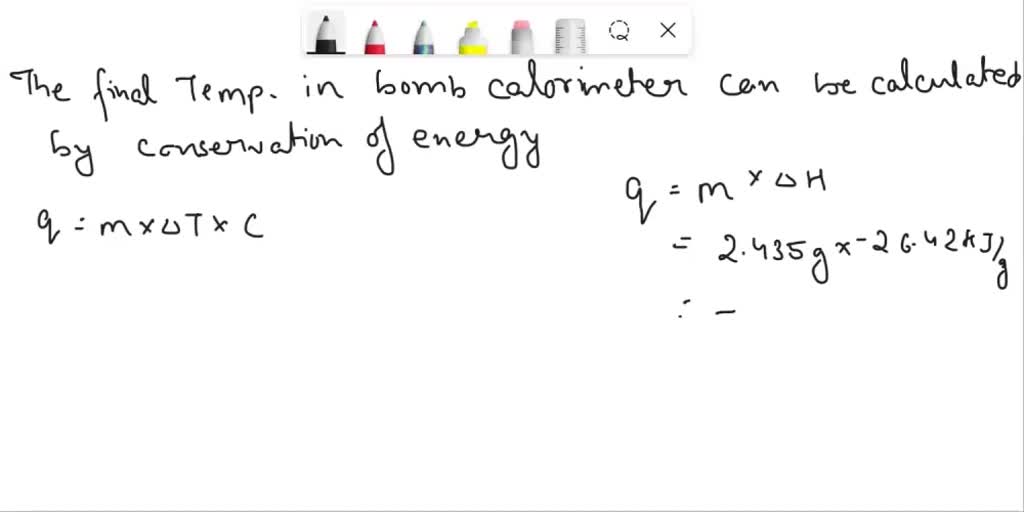 The final Temp. in bomb calorimeter can be calculated
by conservation of energy
q = m x ΔT x C
q = m x ΔH
= 2.435g x -26.42kJ/g
: -